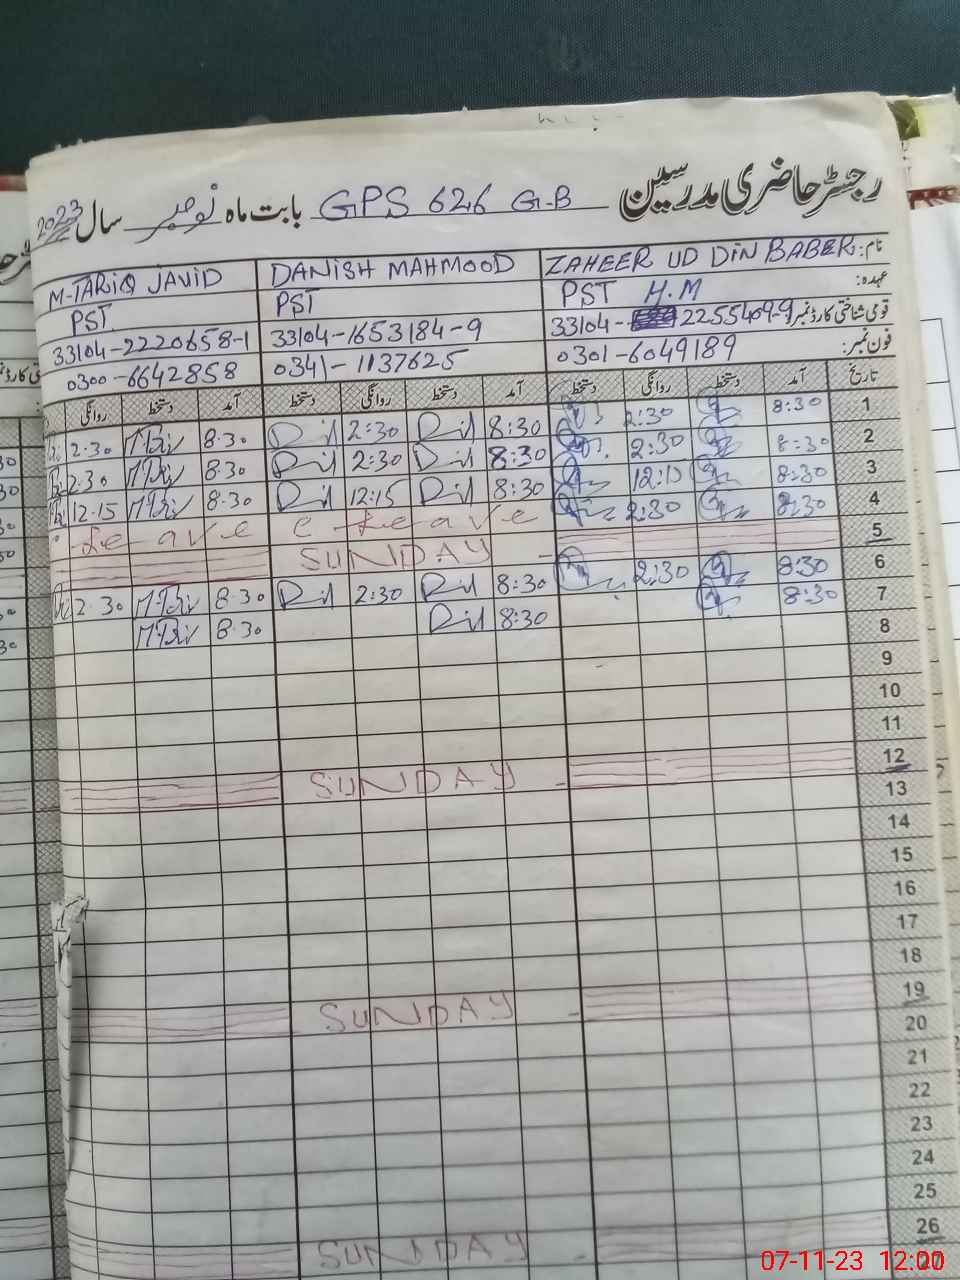 رجسٹر حاضری مدرسین GPS 626 G-B بابت ماہ نومبر سال 2023
نام: ZAHEER UD DIN BABER DANISH MAHMOOD M-TARIQ JAVID
عہدہ: PST H.M PST PST
قومی شناختی کارڈ نمبر: 33104- 2255409-9 33104-1653184-9 33104-2220658-1
فون نمبر: 0301-6049189 0341-1137625 0300-6642858
تاریخ آمد دستخط روانگی دستخط آمد دستخط روانگی دستخط آمد دستخط روانگی
1 8:30 2:30 8:30 2:30 8.30 2.30
2 8:30 2:30 8:30 2:30 8.30 2.30
3 8:30 8:30 12:15 8.30 12.15
4 8:30 2:30 Leave Leave
5 SUNDAY
6 8:30 2:30 8:30 2:30 8.30 2.30
7 8:30 8:30 8.30
8
9
10
11
12 SUNDAY
13
14
15
16
17
18
19 SUNDAY
20
21
22
23
24
25
26 SUNDAY
27
07-11-23 12:00